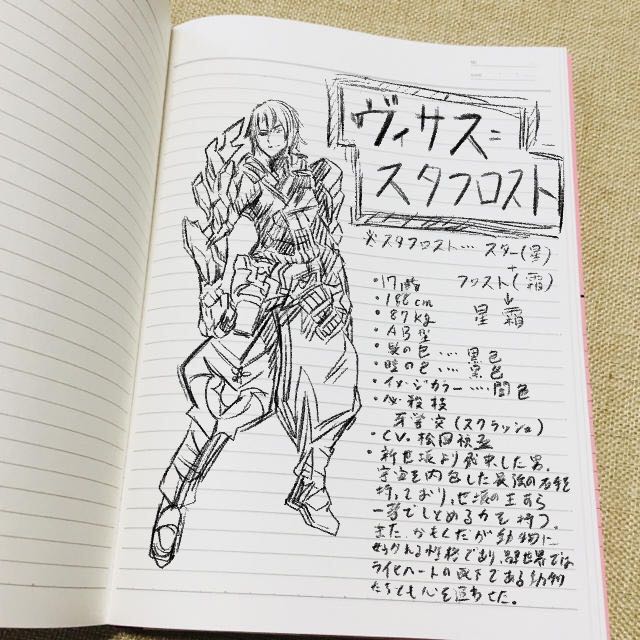 ヴィサス=
スタフロスト
※スタフロスト… スター(星)
+
フロスト(霜)
↓
星霜
・17歳
・188cm
・87kg
・AB型
・髪の色…黒色
・瞳の色…黒色
・イメージカラー…闇色
・必殺技
牙掌突(スクラッシュ)
・CV.松岡禎丞
・新世壊より飛来した男。
宇宙を内包した最強の右手を
持っており、世壊の王すら
一撃でしとめる力を持つ。
また、かもくだが動物に
好かれる性格であり、
ライヒハートの配下である動物
たちとも心を通わせた。